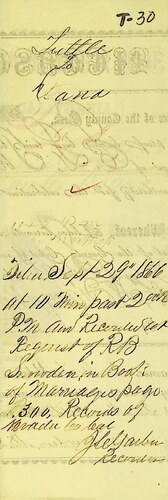 T-30
Tuttle
To
Land
Filed Sept 29th 1866
at 10 Min past 2 oclk
P.M and Recorded at
Request of R B
Snowden in Book
of Marriages page
300, Records of
Nevada Co Cal
Recorder